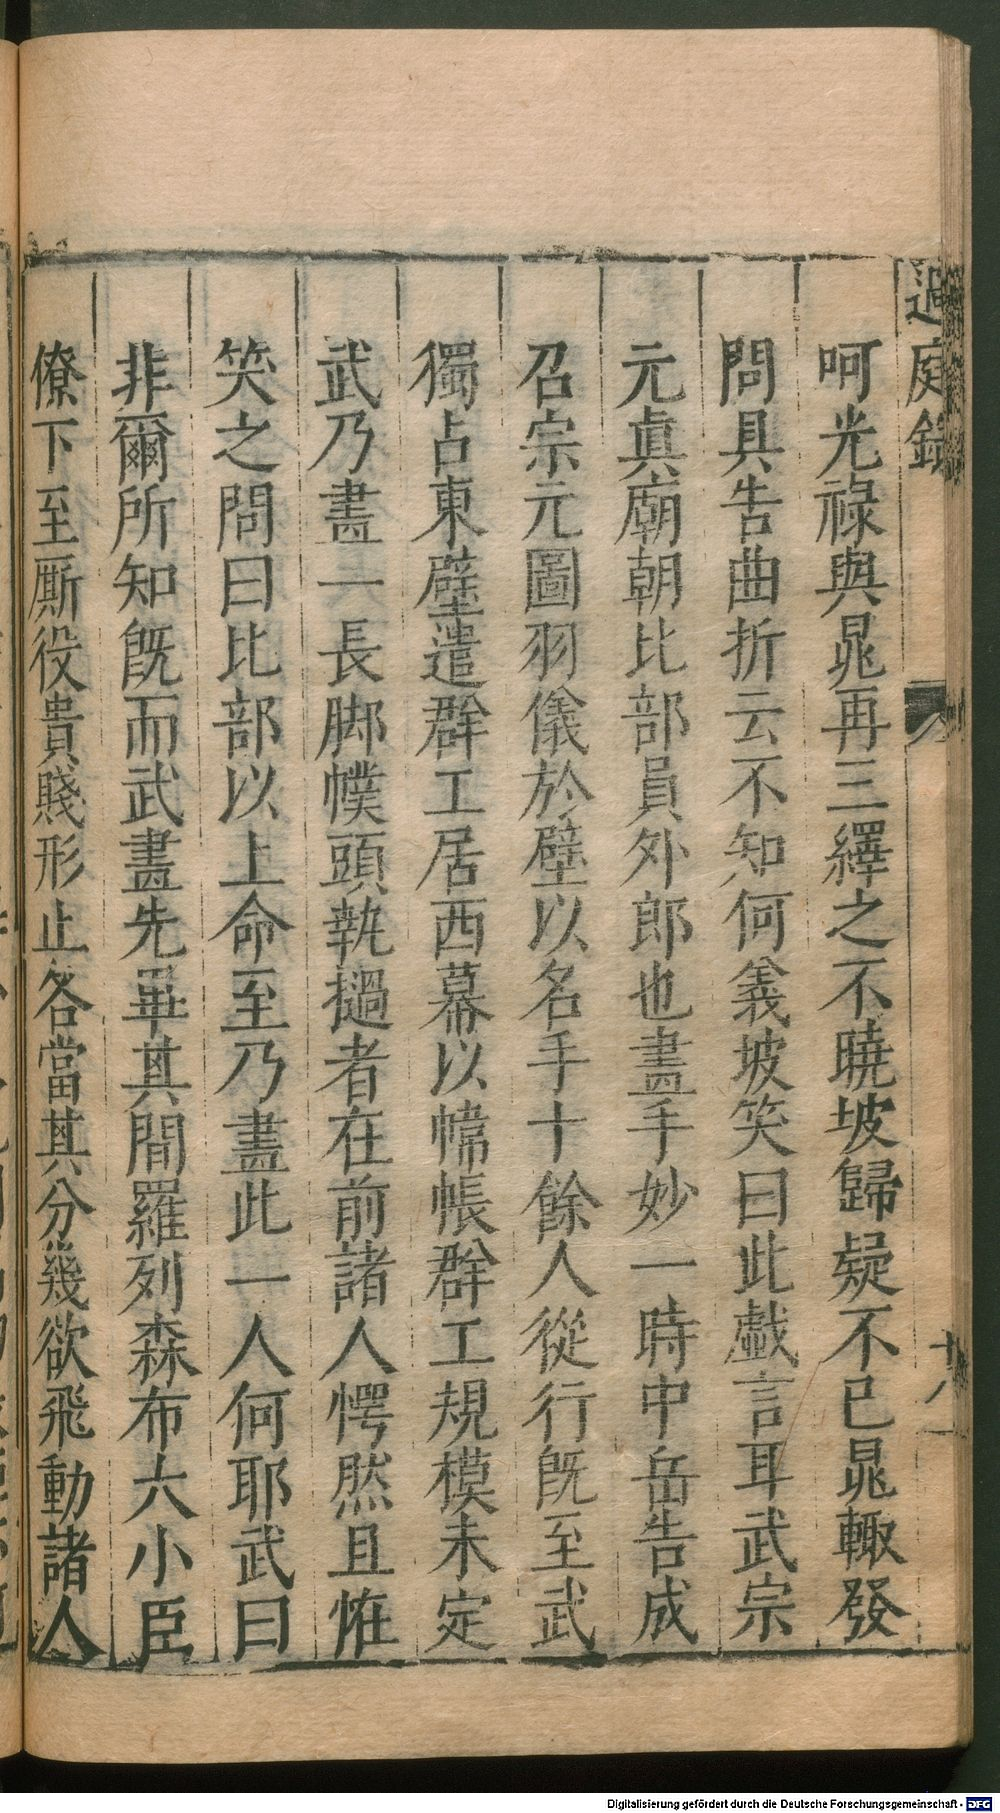 過庭錄
十八
呵光祿與晁再三繹之不曉坡歸疑不已晁輙發
問具告曲折云不知何義坡笑曰此戲言耳武宗
元真廟朝比部員外郎也畫手妙一時中岳告成
召宗元圖羽儀於壁以名手十餘人從行旣至武
獨占東壁遣群工居西幕以幃帳群工規模未定
武乃畫一長脚幞頭執撾者在前諸人愕然且恠
笑之問曰比部以上命至乃畫此一人何耶武曰
非爾所知旣而武畫先畢其間羅列森布大小臣
僚下至厮役貴賤形止各當其分幾欲飛動諸人
Digitalisierung gefördert durch die Deutsche Forschungsgemeinschaft - DFG